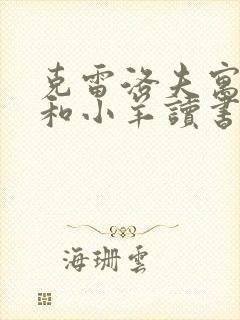 克雷洛夫寓
和小羊讀書
海珊雲